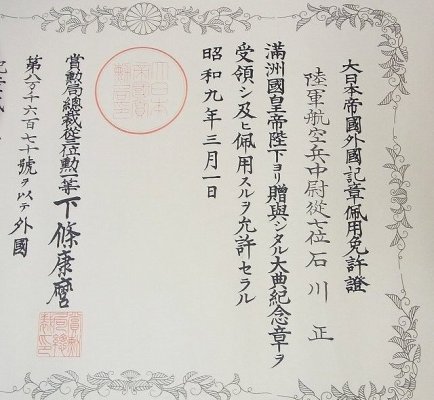 大日本帝國外國記章佩用免許證
陸軍航空兵中尉從七位石川正
滿洲國皇帝陛下ヨリ贈與シタル大典紀念章ヲ
受領シ及ヒ佩用スルヲ允許セラル
昭和九年三月一日
大日本帝國賞勲局印
賞勲局總裁從三位勲一等下條康麿
賞勲局總裁印
第八万十六百七十號ヲ以テ外國